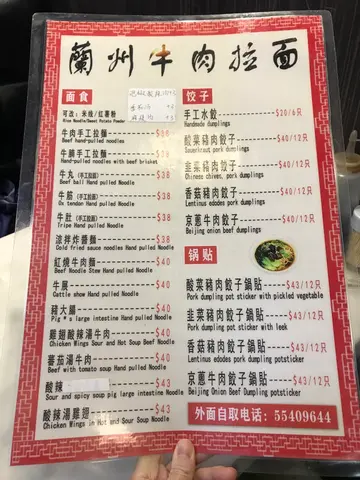 蘭州牛肉拉面
面食
可改：米线/红薯粉
Rice Noodle/Sweet Potato Powder
牛肉手工拉麵
Beef hand-pulled noodles
牛腩手工拉麵
Hand-pulled noodles with beef brisket
牛丸(手工拉麵)
Beef ball Hand pulled Noodle
牛筋(手工拉麵)
Ox tendon Hand pulled Noodle
牛肚(手工拉麵)
Tripe Hand pulled Noodle
涼拌炸醬麵
Cold fried sauce noodles Hand pulled Noodle
紅燒牛肉麵 $40
Beef Noodle Stew Hand pulled Noodle
牛展 $40
Cattle show Hand pulled Noodle
豬大腸 $40
Pig's large intestine Hand pulled Noodle
雞翅酸辣湯牛肉 $40
Chicken Wings Sour and Hot Soup Beef Noodle
蕃茄湯牛肉 $40
Beef with tomato soup Hand pulled Noodle
酸辣 $43
Sour and spicy soup pig large intestine Noodle
酸辣湯雞翅 $43
Chicken Wings in Hot and Sour Soup Noodle
饺子
手工水餃 $20/6只
Handmade dumplings
酸菜豬肉餃子 $40/12只
Sauerkraut pork dumplings
韭菜豬肉餃子 $40/12只
Chinese chives, pork dumplings
香菇豬肉餃子 $40/12只
Lentinus edodes pork dumplings
京蔥牛肉餃子 $40/12只
Beijing onion beef dumplings
锅贴
酸菜豬肉餃子鍋貼 $43/12只
Pork dumpling pot sticker with pickled vegetable
韭菜豬肉餃子鍋貼 $43/12只
Pork dumpling pot sticker with leek
香菇豬肉餃子鍋貼 $43/12只
Lentinus edodes pork dumpling potsticker
京蔥牛肉餃子鍋貼 $43/12只
Beijing Onion Beef Dumpling potsticker
外面自取电话：55409644